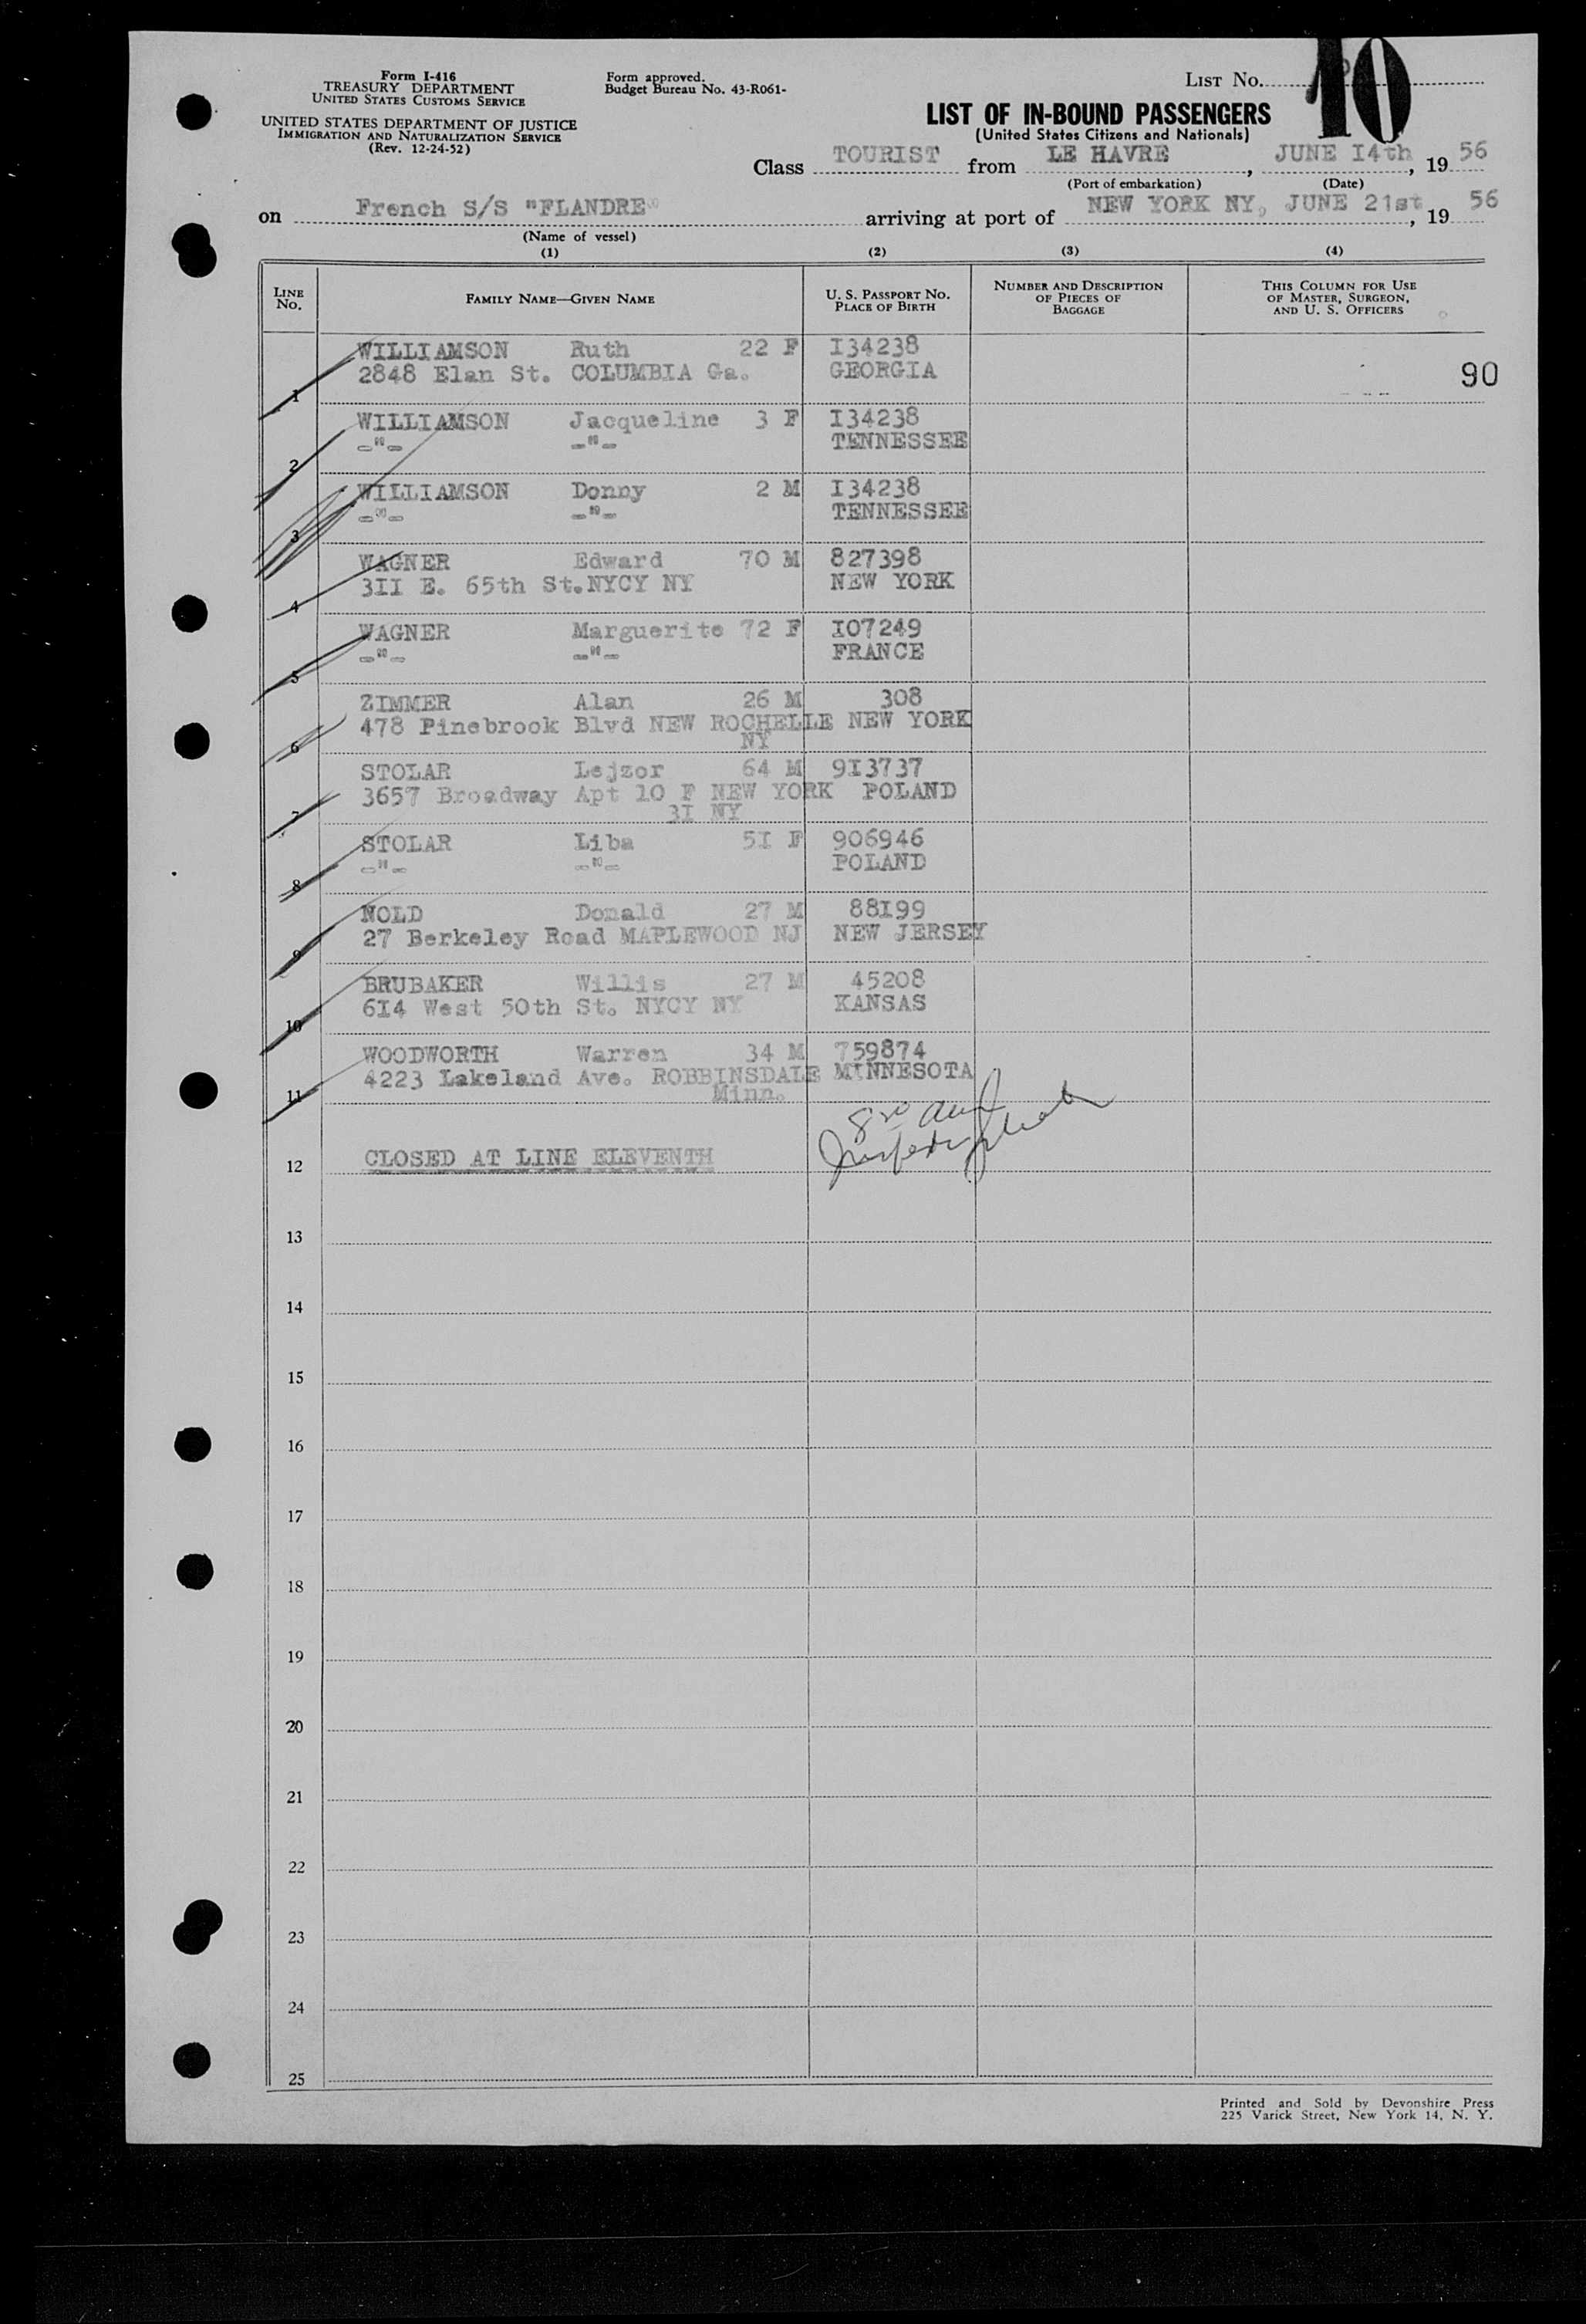 Form I-416
TREASURY DEPARTMENT
UNITED STATES CUSTOMS SERVICE
UNITED STATES DEPARTMENT OF JUSTICE
IMMIGRATION AND NATURALIZATION SERVICE
(Rev. 12-24-52)
Form approved.
Budget Bureau No. 43-R061-
LIST NO. 10
LIST OF IN-BOUND PASSENGERS
(United States Citizens and Nationals)
Class TOURIST from LE HAVRE, JUNE I4th, 19 56
(Port of embarkation) (Date)
on French S/S "FLANDRE" arriving at port of NEW YORK NY, JUNE 21st, 19 56
(Name of vessel)
(1) (2) (3) (4)
LINE NO. FAMILY NAME—GIVEN NAME U. S. PASSPORT NO. PLACE OF BIRTH NUMBER AND DESCRIPTION OF PIECES OF BAGGAGE THIS COLUMN FOR USE OF MASTER, SURGEON, AND U. S. OFFICERS
WILLIAMSON Ruth 22 F I34238
1 2848 Elan St. COLUMBIA Ga. GEORGIA 90
WILLIAMSON Jacqueline 3 F I34238
2 -"- -"- TENNESSEE
WILLIAMSON Donny 2 M I34238
3 -"- -"- TENNESSEE
WAGNER Edward 70 M 827398
4 3II E. 65th St.NYCY NY NEW YORK
WAGNER Marguerite 72 F I07249
5 -"- -"- FRANCE
ZIMMER Alan 26 M 308
6 478 Pinebrook Blvd NEW ROCHELLE NEW YORK
NY
STOLAR Lejzor 64 M 9I3737
7 3657 Broadway Apt 10 F NEW YORK POLAND
3I NY
STOLAR Liba 5I F 906946
8 -"- -"- POLAND
NOLD Donald 27 M 88I99
9 27 Berkeley Road MAPLEWOOD NJ NEW JERSEY
BRUBAKER Willis 27 M 45208
10 6I4 West 50th St. NYCY NY KANSAS
WOODWORTH Warren 34 M 759874
11 4223 Lakeland Ave. ROBBINSDALE MINNESOTA
Minn.
12 CLOSED AT LINE ELEVENTH
13
14
15
16
17
18
19
20
21
22
23
24
25
Printed and Sold by Devonshire Press
225 Varick Street, New York 14, N. Y.